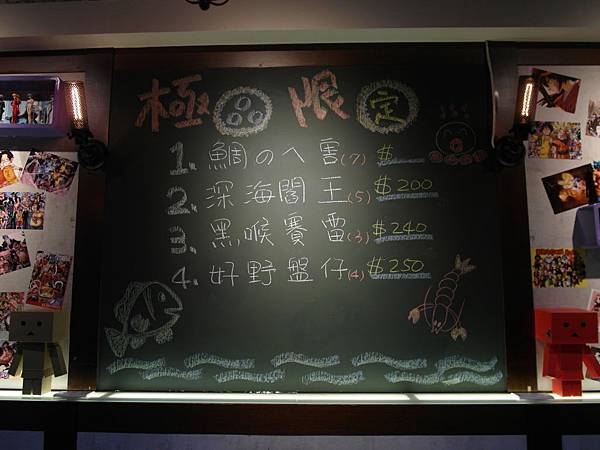 極品限定
1. 鯛の人害(7) $
2. 深海閻王(5) $200
3. 黑喉賽雷(3) $240
4. 好野盤仔(4) $250